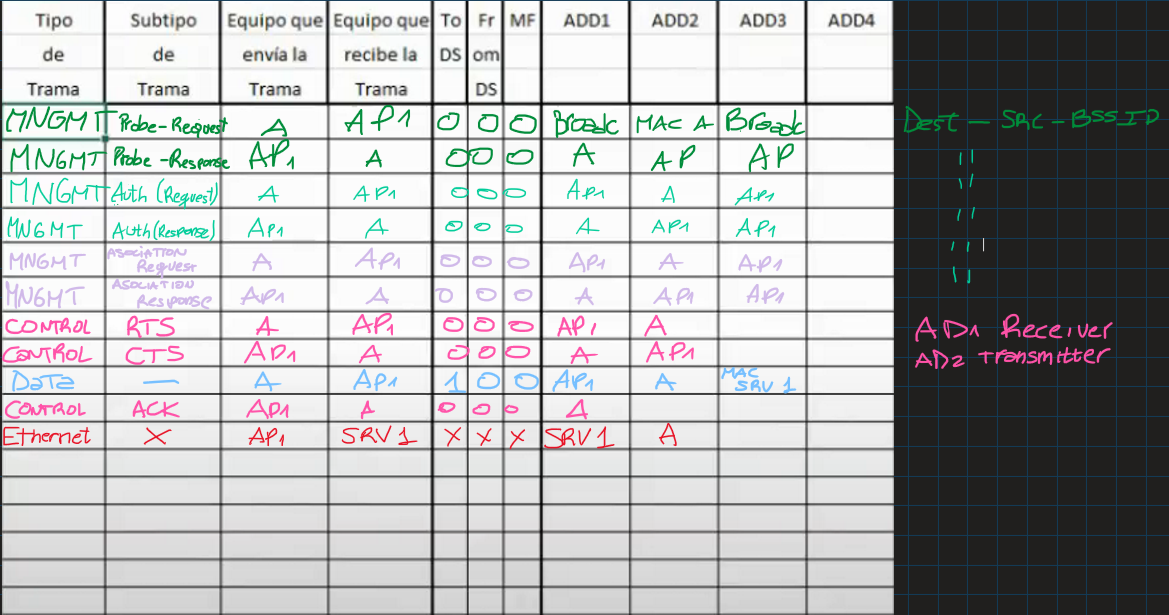 Tipo de Trama | Subtipo de Trama | Equipo que envía la Trama | Equipo que recibe la Trama | To DS | Fr om DS | MF | ADD1 | ADD2 | ADD3 | ADD4
MNGMT | Probe-Request | A | AP1 | 0 | 0 | 0 | Broadc | MAC A | Broadc
MNGMT | Probe-Response | AP1 | A | 0 | 0 | 0 | A | AP | AP
MNGMT | Auth (Request) | A | AP1 | 0 | 0 | 0 | AP1 | A | AP1
MNGMT | Auth (Response) | AP1 | A | 0 | 0 | 0 | A | AP1 | AP1
MNGMT | ASOCIATION Request | A | AP1 | 0 | 0 | 0 | AP1 | A | AP1
MNGMT | ASOCIATION Response | AP1 | A | 0 | 0 | 0 | A | AP1 | AP1
CONTROL | RTS | A | AP1 | 0 | 0 | 0 | AP1 | A
CONTROL | CTS | AP1 | A | 0 | 0 | 0 | A | AP1
DaTa | — | A | AP1 | 1 | 0 | 0 | AP1 | A | MAC SRV 1
CONTROL | ACK | AP1 | A | 0 | 0 | 0 | A
Ethernet | X | AP1 | SRV 1 | X | X | X | SRV 1 | A
Dest — SRC - BSSID
"
"
"
"
"
AD1 Receiver
AD2 transmitter